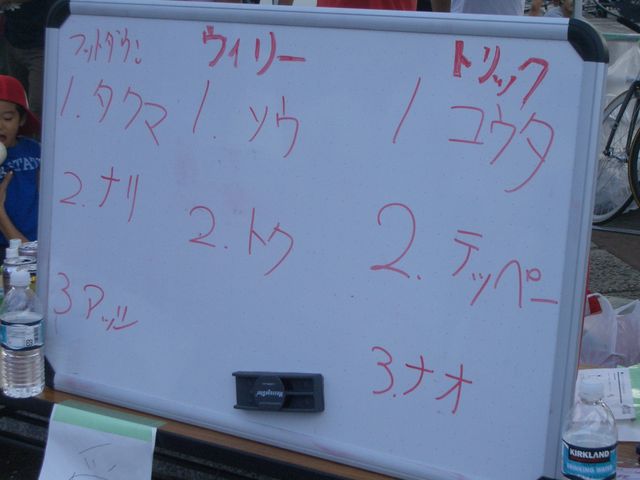 フットダウン
1. タクマ
2. ナリ
3 アッシ
ウィリー
1. ソウ
2. トク
トリック
1 コウタ
2. テッペー
3. ナオ
KIRKLAND
DRINKING WATER